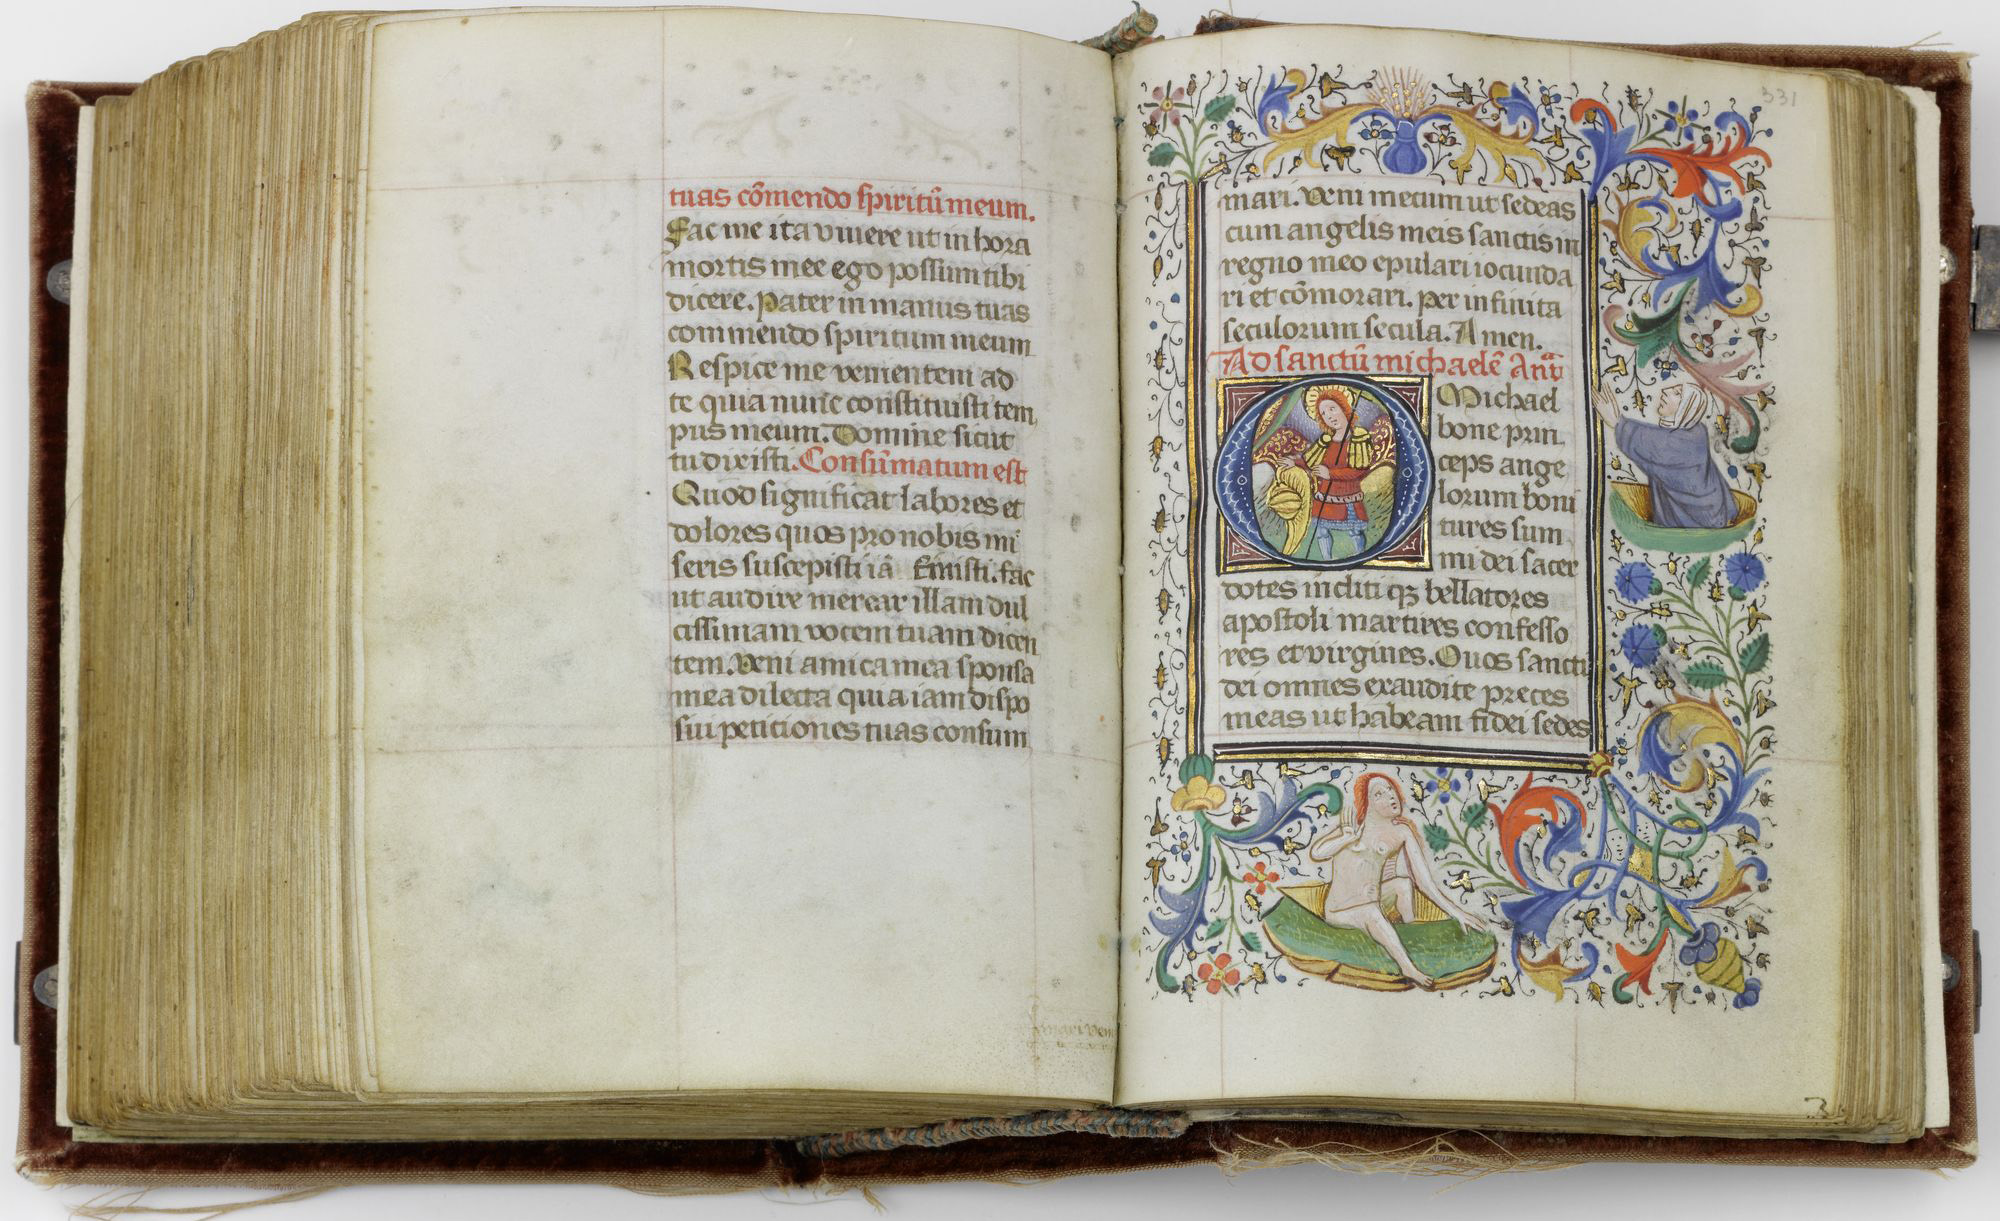 tuas cõmendo spiritũ meum.
Fac me ita vivere ut in hora
mortis mee ego possum tibi
dicere. Pater in manus tuas
commendo spiritum meum
Respice me venientem ad
te quia nunc constituisti tem
pus meum. Domine sicut
tu dixisti. Consũmatum est
Quod significat labores et
dolores quos pro nobis mi
seris suscepisti iã finisti. fac
ut audire merear illam dul
cissimam vocem tuam dicen
tem. Veni amica mea sponsa
mea dilecta quia iam dispo
sui peticiones tuas consum
mari ven
331
mari. Veni mecum ut sedeas
cum angelis meis sanctis in
regno meo epulari iocunda
ri et cõmorari. per infinita
seculorum secula. Amen.
Ad sanctũ michaelẽ Anã
O Michael
bone prin
ceps ange
lorum boni
tures sum
mi dei sacer
dotes incliti qꝫ bellatores
apostoli martires confesso
res et virgines. Quos sancti
dei omnes exaudite preces
meas ut habeam fidei sedes